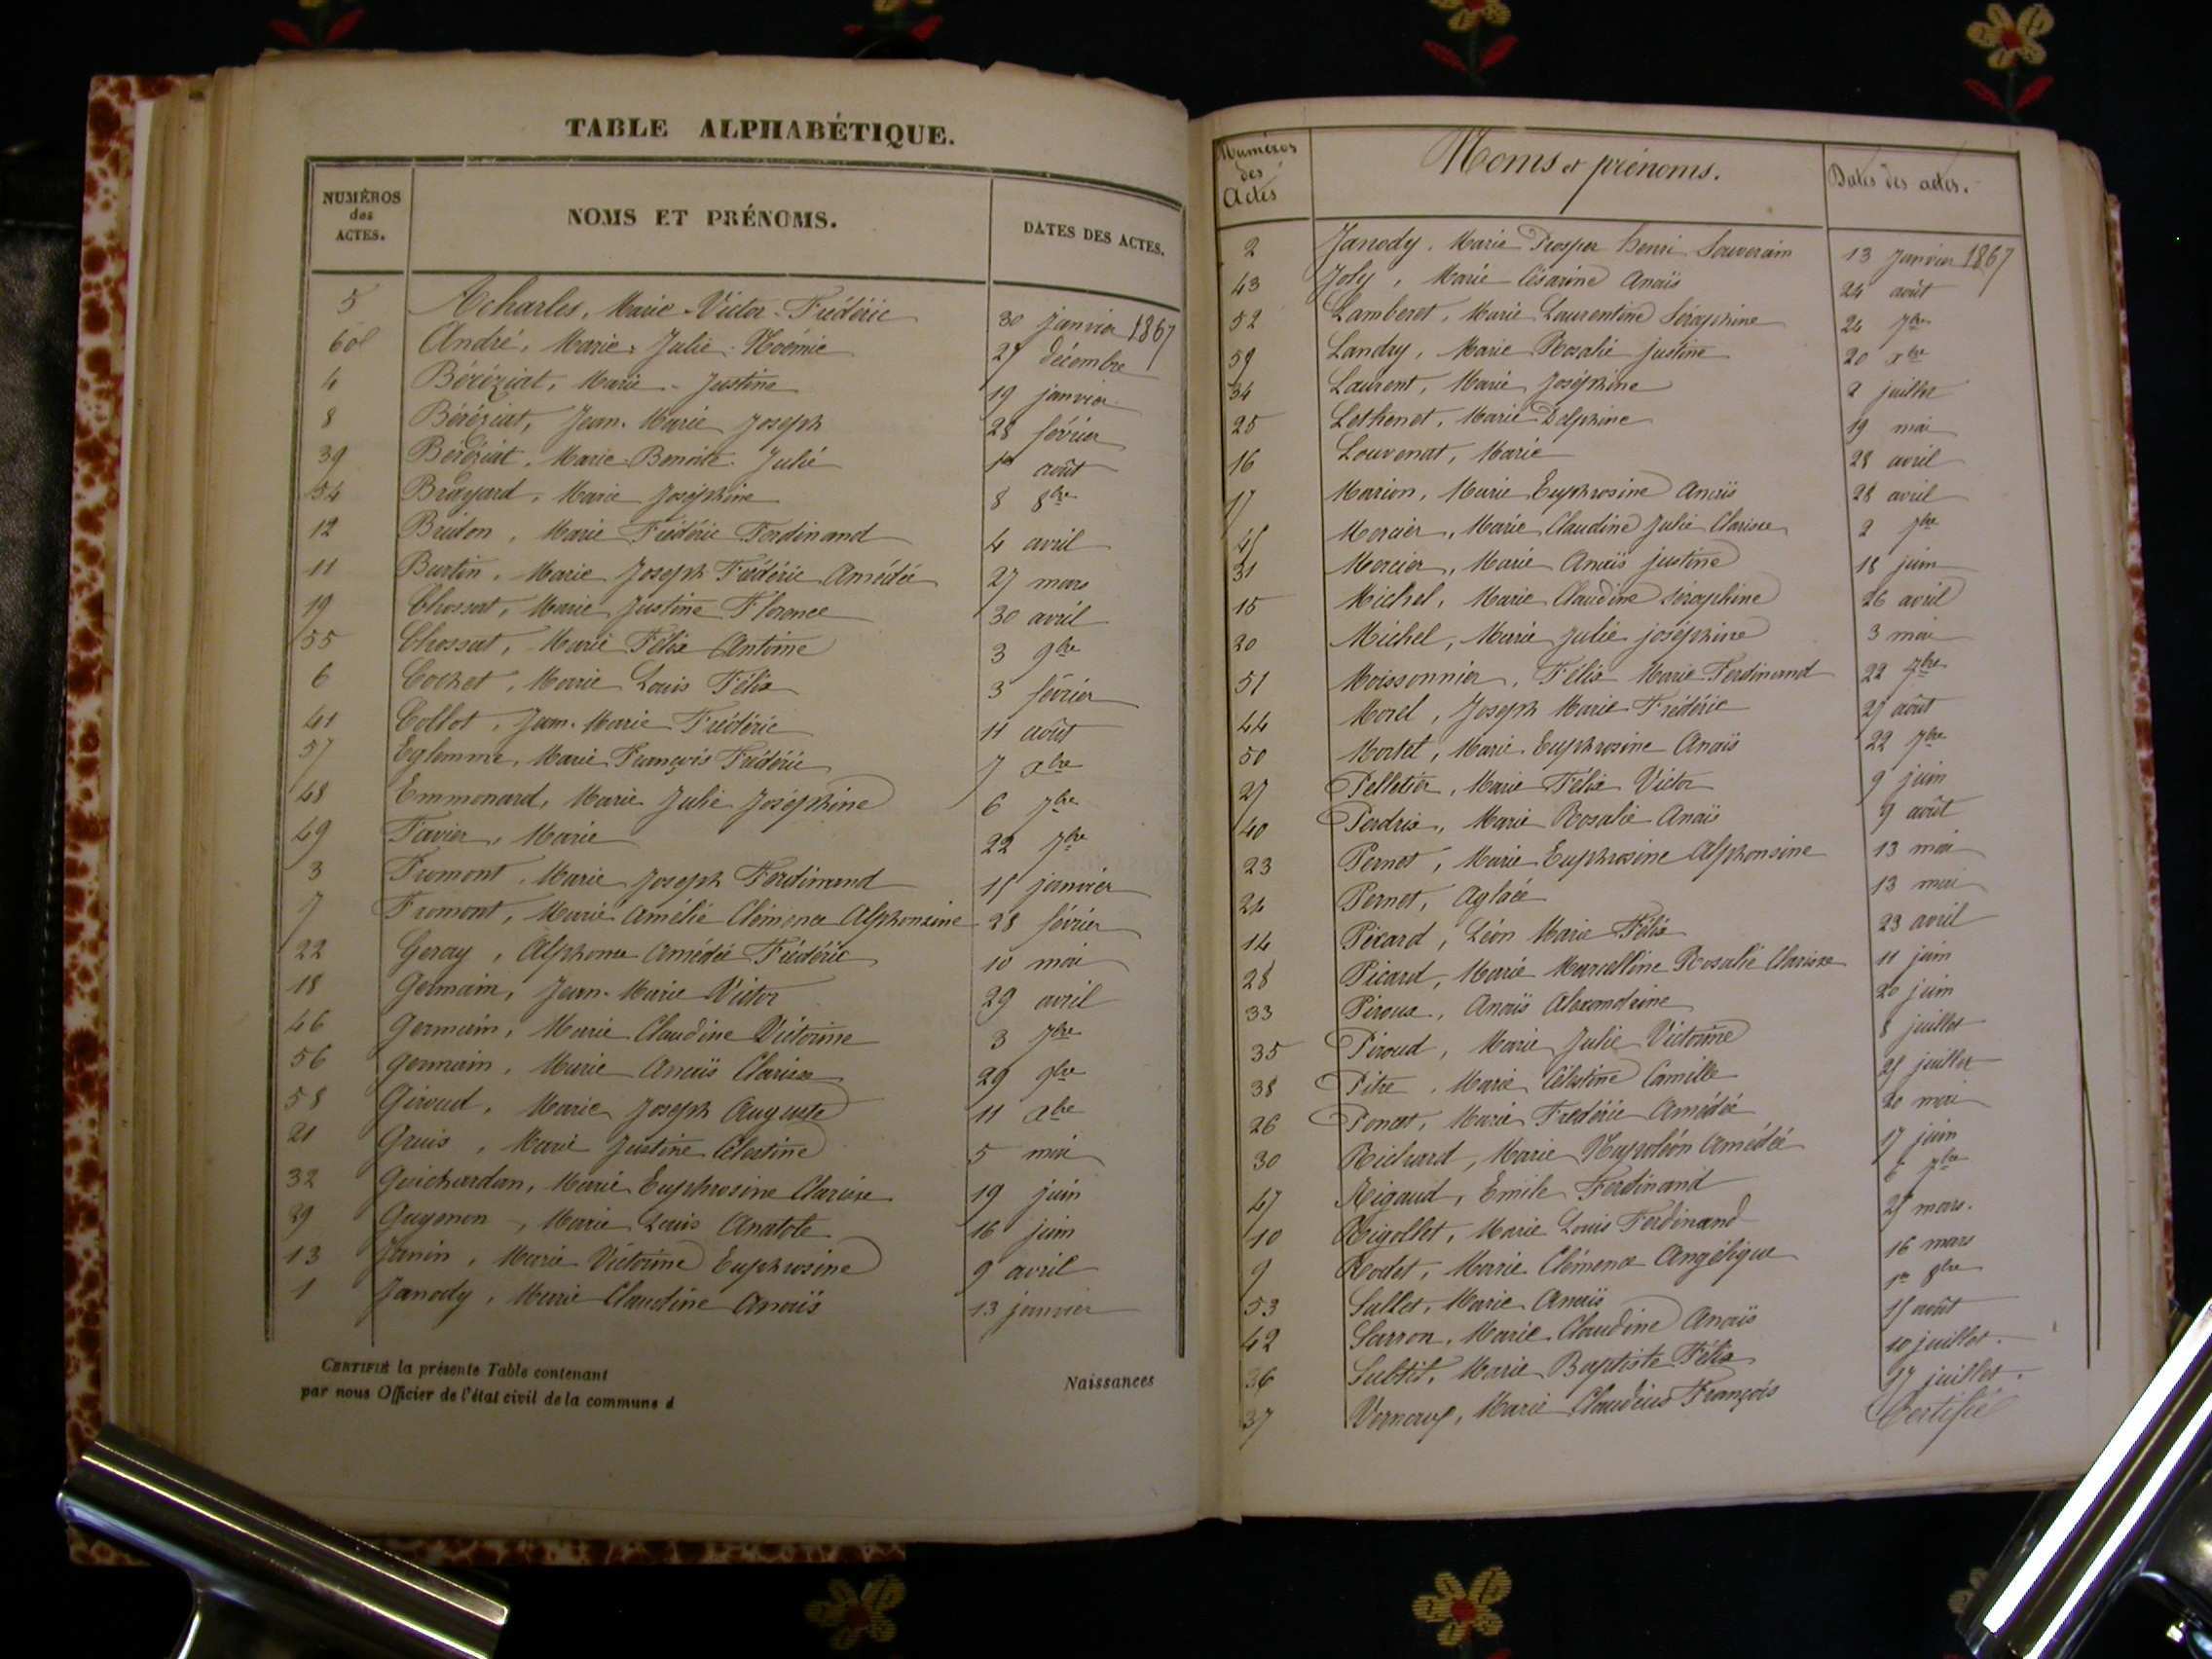 TABLE ALPHABÉTIQUE.
NUMÉROS des ACTES. NOMS ET PRÉNOMS. DATES DES ACTES.
5 Acharles, Marie-Victor-Frédéric 30 Janvier 1867
60 André, Marie-Julie-Noémie 27 décembre
4 Béréziat, Marie-Justine 19 janvier
8 Béréziat, Jean-Marie Joseph 28 février
39 Béréziat, Marie-Benoite-Julie 1er août
54 Brayard, Marie Joséphine 8 8bre
12 Bridon, Marie Frédéric Ferdinand 4 avril
11 Burtin, Marie Joseph Frédéric Amédée 27 mars
19 Chossat, Marie Justine Florence 30 avril
55 Chossat, Marie Félix Antoine 3 9bre
6 Cochet, Marie Louis Félix 3 février
41 Collot, Jean-Marie Frédéric 11 août
57 Eglemme, Marie François Frédéric 7 xbre
48 Emmonard, Marie Julie Joséphine 6 7bre
49 Favier, Marie 22 7bre
3 Fromont, Marie Joseph Ferdinand 15 janvier
7 Fromont, Marie Amélie Clémence Alphonsine 28 février
22 Geray, Alphonse Amédée Frédéric 10 mai
18 Germain, Jean-Marie Victor 29 avril
46 Germain, Marie Claudine Victorine 3 7bre
56 Germain, Marie Anaïs Clarisse 29 9bre
58 Giroud, Marie Joseph Auguste 11 xbre
21 Gruis, Marie Justine Célestine 5 mai
32 Guichardan, Marie Euphrosine Clarisse 19 juin
29 Guyenon, Marie Louis Anatole 16 juin
13 Janin, Marie Victorine Euphrosine 9 avril
1 Janody, Marie Claudine Anaïs 13 janvier
CERTIFIÉ la présente Table contenant
par nous Officier de l'état civil de la commune d
Naissances
Numéros des Actes Noms et prénoms. Dates des actes.
2 Janody, Marie Prosper henri Souverain 13 Janvier 1867
43 Joly, Marie Césarine Anaïs 24 août
52 Lamberet, Marie Laurentine Séraphine 24 7bre
59 Landry, Marie Rosalie Justine 20 xbre
34 Laurent, Marie Joséphine 2 juillet
25 Lethenet, Marie Delphine 19 mai
16 Louvenat, Marie 28 avril
17 Marion, Marie Euphrosine Anaïs 28 avril
45 Mercier, Marie Claudine Julie Clarisse 2 7bre
31 Mercier, Marie Anaïs justine 18 juin
15 Michel, Marie Claudine Séraphine 26 avril
20 Michel, Marie Julie joséphine 3 mai
51 Moissonnier, Félix Marie Ferdinand 22 7bre
44 Morel, Joseph Marie Frédéric 25 août
50 Mortet, Marie Euphrosine Anaïs 22 7bre
27 Pelletier, Marie Félix Victor 9 juin
40 Perdrix, Marie Rosalie Anaïs 9 août
23 Pernet, Marie Euphrosine Alphonsine 13 mai
24 Pernet, Aglaée 13 mai
14 Picard, Léon Marie Félix 23 avril
28 Picard, Marie Marcelline Rosalie Clarisse 11 juin
33 Piroux, Anaïs Alexandrine 20 juin
35 Piroud, Marie Julie Victorine 8 juillet
38 Pitre, Marie Célestine Camille 25 juillet
26 Ponat, Marie Frédéric Amédée 20 mai
30 Richard, Marie Napoléon Amédée 17 juin
47 Rigaud, Emile Ferdinand 6 7bre
10 Rigollet, Marie Louis Ferdinand 25 mars.
9 Rodet, Marie Clémence Angélique 16 mars
53 Sallet, Marie Anaïs 1er 8bre
42 Sarron, Marie Claudine Anaïs 15 août
36 Subtil, Marie Baptiste Félix 10 juillet.
37 Marie Claudius François 17 juillet.
Certifié